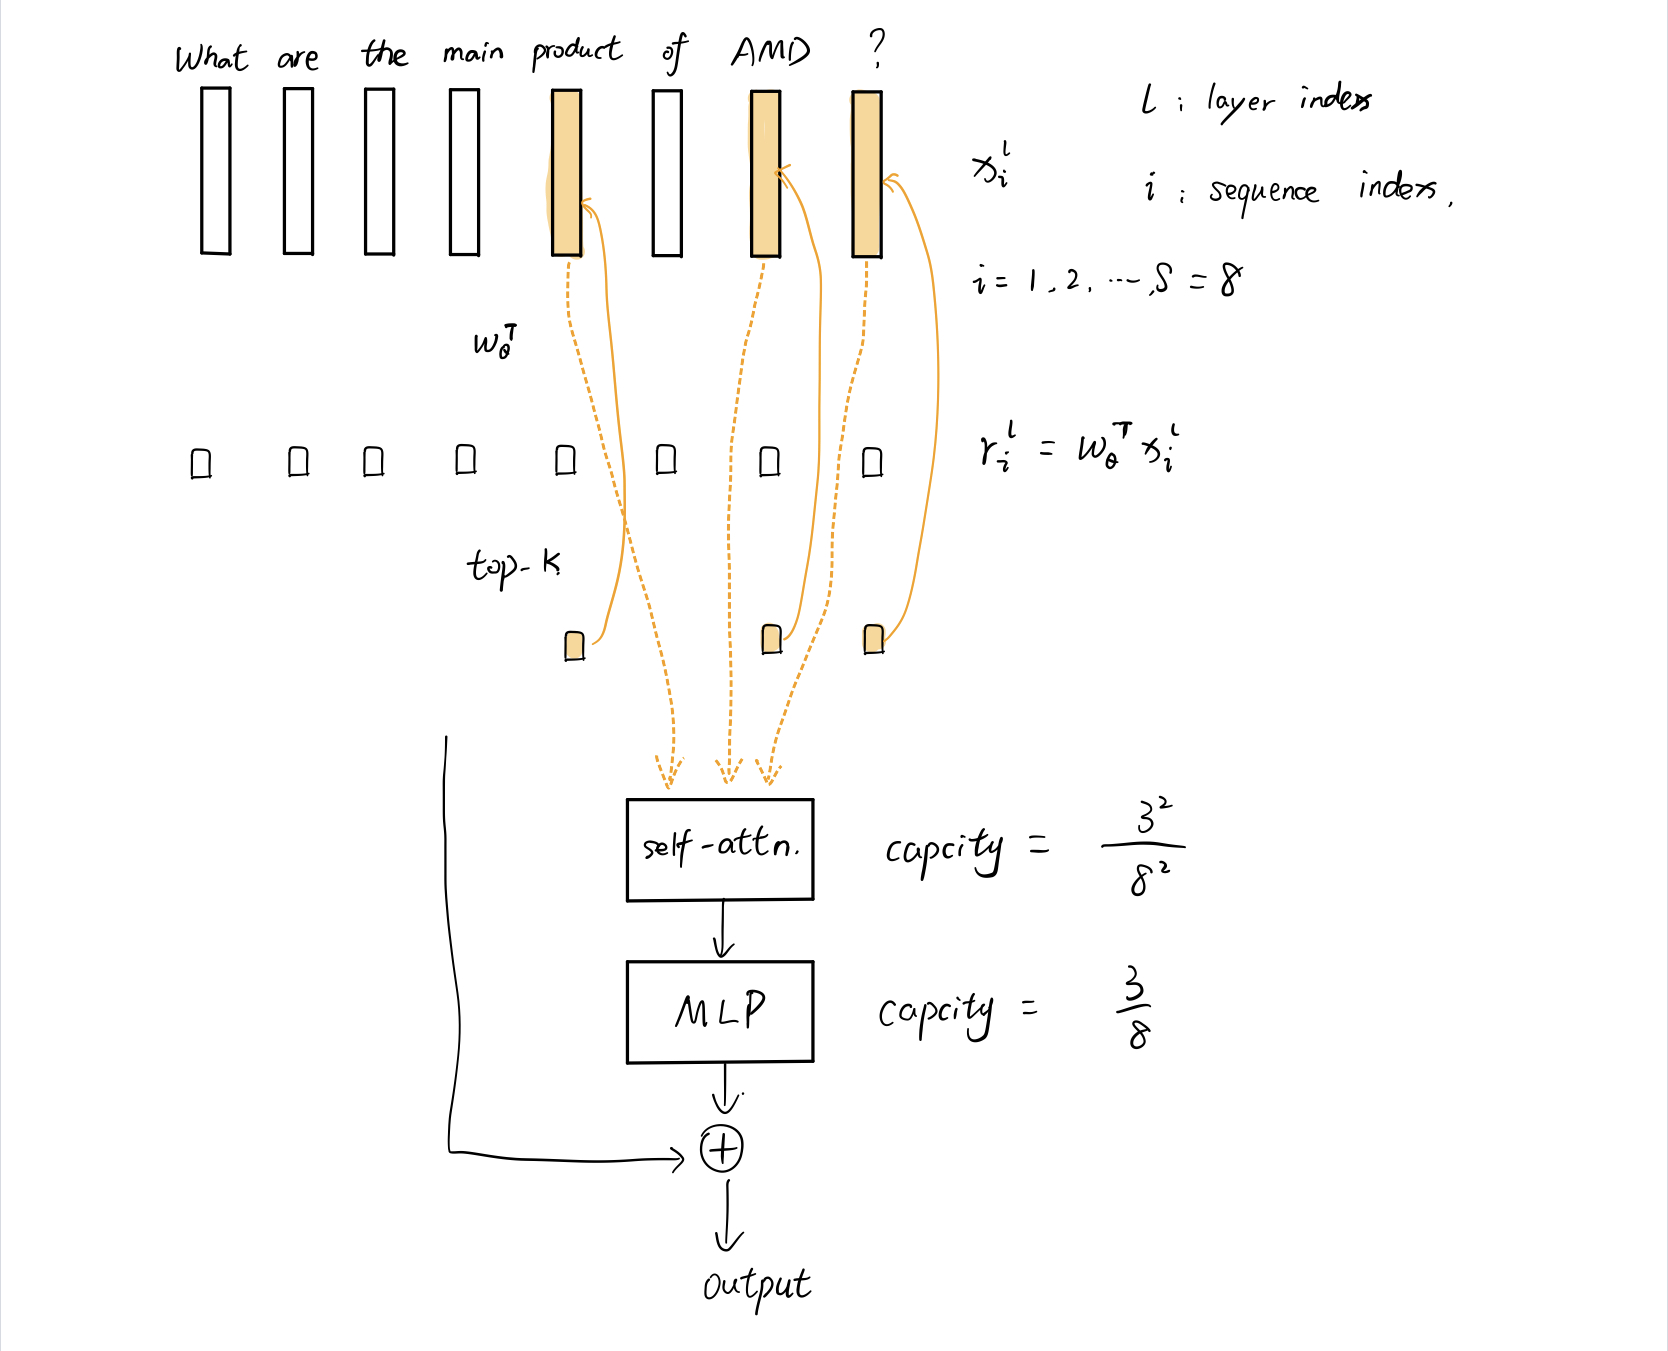 What are the main product of AMD ?
l : layer index
x_i^l
i : sequence index.
i = 1, 2, ..., S = 8
w_θ^T
r_i^l = w_θ^T x_i^l
top-k
self-attn.
capcity = 3^2 / 8^2
MLP
capcity = 3 / 8
+
output